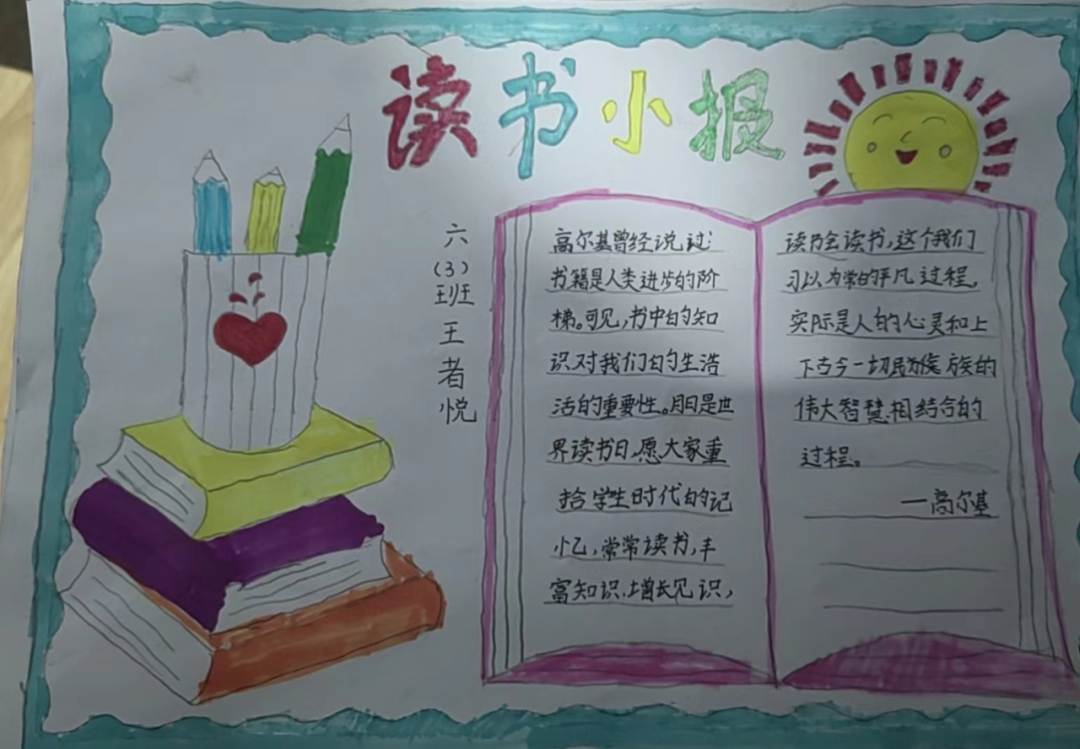 读书小报
六
(3)
班
王
者
悦
高尔基曾经说过
书籍是人类进步的阶
梯。可见,书中的知
识对我们的生浩
活的重要性。明日是世
界读书日,愿大家重
拾学生时代的记
忆,常常读书,丰
富知识,增长见识,
读乃会读书,这个我们
习以为常的平凡过程,
实际是人的心灵和上
下古今一切民族的
伟大智慧相结合的
过程。
—高尔基